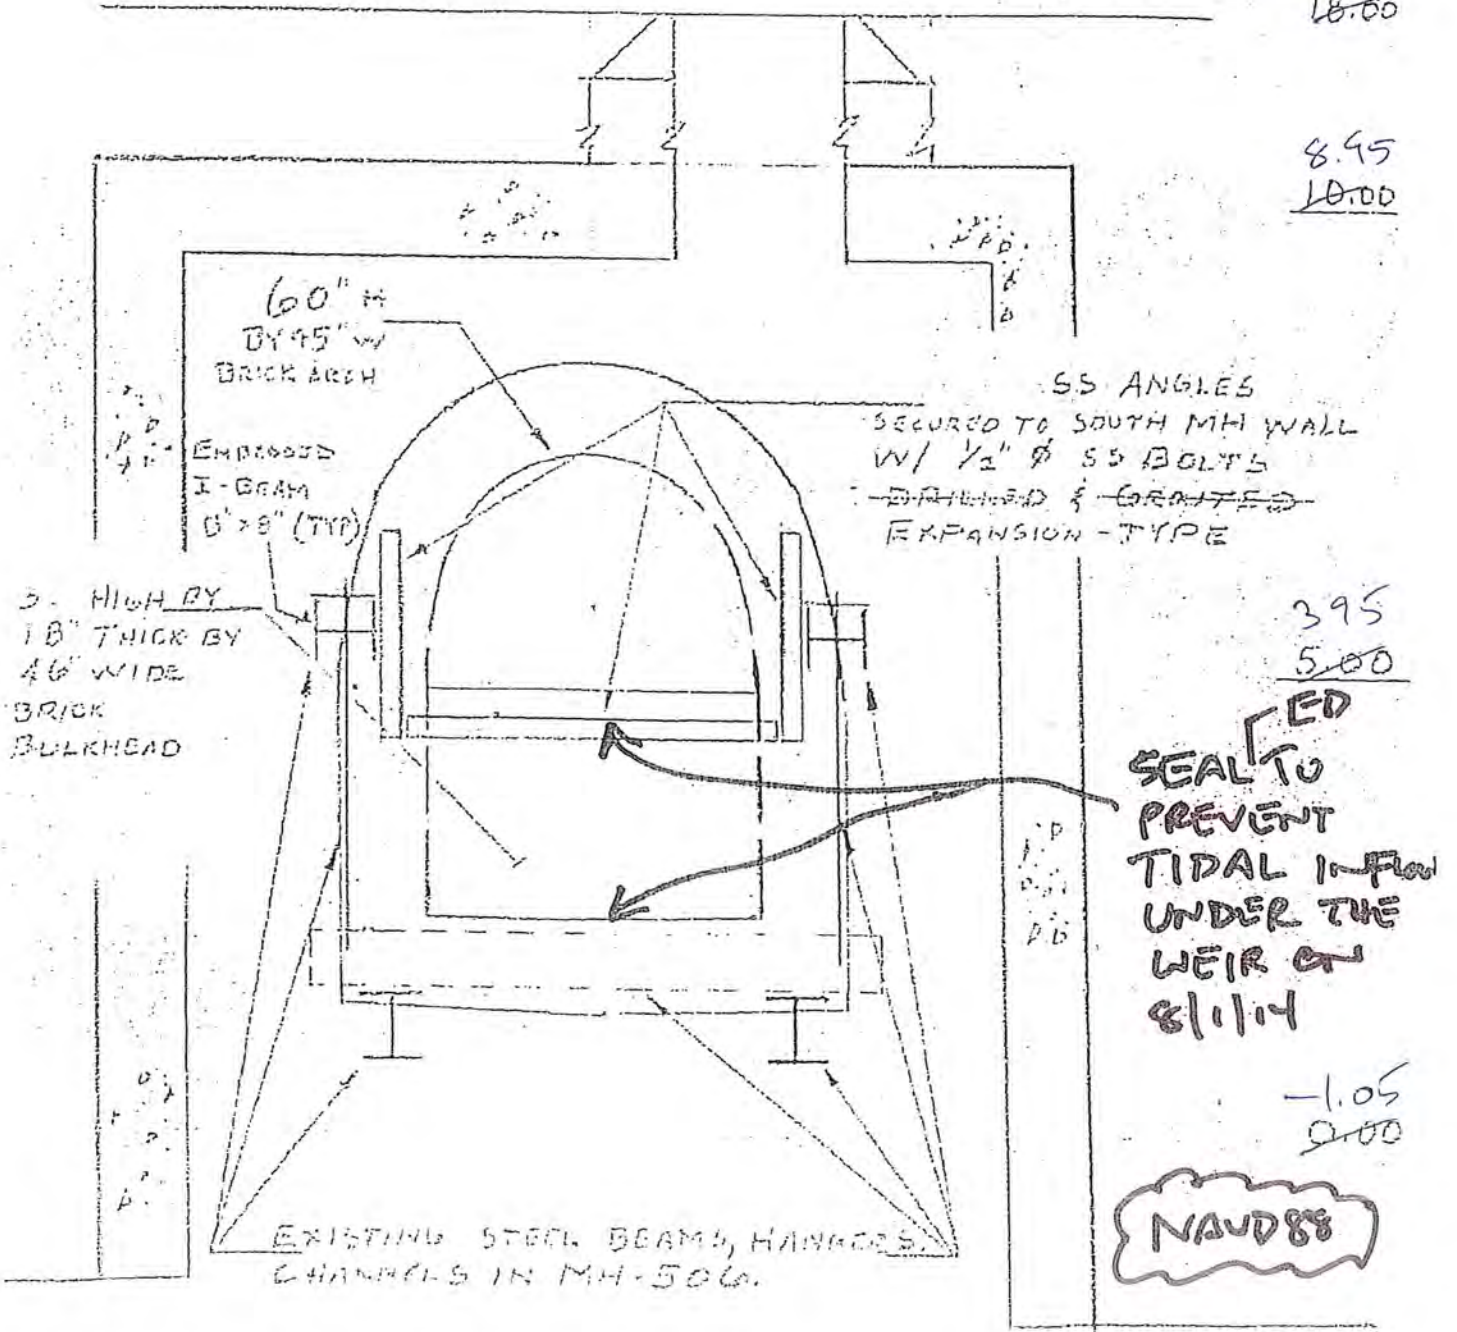 18.00
8.95
10.00
60" H
BY 45" W
BRICK ARCH
SS ANGLES
SECURED TO SOUTH MH WALL
W/ 1/2" Ø SS BOLTS
DRILLED & GROUTED
EXPANSION-TYPE
EMBEDDED
I-BEAM
8" (TYP)
HIGH BY
18" THICK BY
46" WIDE
BRICK
BULKHEAD
3.95
5.00
ED
SEAL TO
PREVENT
TIDAL INFLOW
UNDER THE
WEIR ON
8/1/14
-1.05
0.00
NAVD88
EXISTING STEEL BEAMS, HANGERS,
CHANNELS IN MH-506.